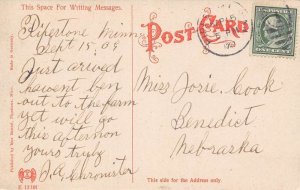 This Space For Writing Messages.
POST CARD
Pipestone Minn
Sept 15, 09
Just arived
havent ben
out to the farm
yet will go
this afternon
yours truly
Chronister
Miss Josie Cook
Benedict
Nebraska
This side for the Address only